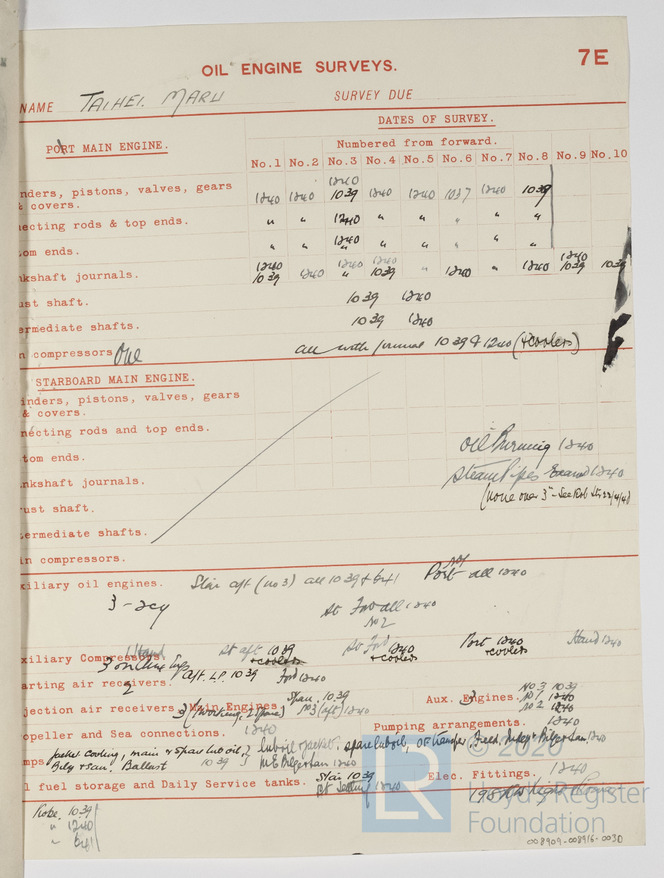 7E
OIL ENGINE SURVEYS.
NAME TAIHEI MARU SURVEY DUE
DATES OF SURVEY.
PORT MAIN ENGINE.
Numbered from forward.
No.1 No.2 No.3 No.4 No.5 No.6 No.7 No.8 No.9 No.10
1240
nders, pistons, valves, gears 1240 1240 1039 1240 1240 1037 1240 1039
& covers.
necting rods & top ends. " " 1240 " " " " "
om ends. " " 1240 " " " " "
1240 1240 1240 1240
nkshaft journals. 1039 1240 " 1039 " 1240 " 1240 1039 1039
ust shaft. 1039 1240
ermediate shafts. 1039 1240
n compressors One all with 1039 & 1240 (+coolers)
STARBOARD MAIN ENGINE.
inders, pistons, valves, gears
& covers.
necting rods and top ends.
Oil Burning 1240
tom ends.
Steam Pipes Exam 1240
nkshaft journals.
(None over 3" - See Kob
ust shaft.
ermediate shafts.
n compressors.
xiliary oil engines. Star aft (no3) all 1039 & 641 Port all 1240
3 - 2cy St Fwd all 1240
No2
xiliary Compressors. 1 Hand St aft 1039 St Fwd 1240 Port 1240 Hand 1240
+coolers +coolers +coolers
arting air receivers. 2 Aft L.P. 1039 Fwd 1240
jection air receivers, Main Engines 3 (1 working, 2 spare) Spare. 1039 No3 (aft) 1240 Aux. Engines. 3 No.3 1039
No1 1240
No2 1240
opeller and Sea connections. 1240 Pumping arrangements. 1240
mps Jacket Cooling, main & spare lub oil, lub oil spare lub oil, OF transfer, Feed,
Blg & san. Ballast 1039 1240
l fuel storage and Daily Service tanks. Star 1039 Elec. Fittings. 1240
Settling 1240
Kobe. 1039
" 1240
" 641
© 2020
LR
Lloyd's Register
Foundation
008909-008916-0030